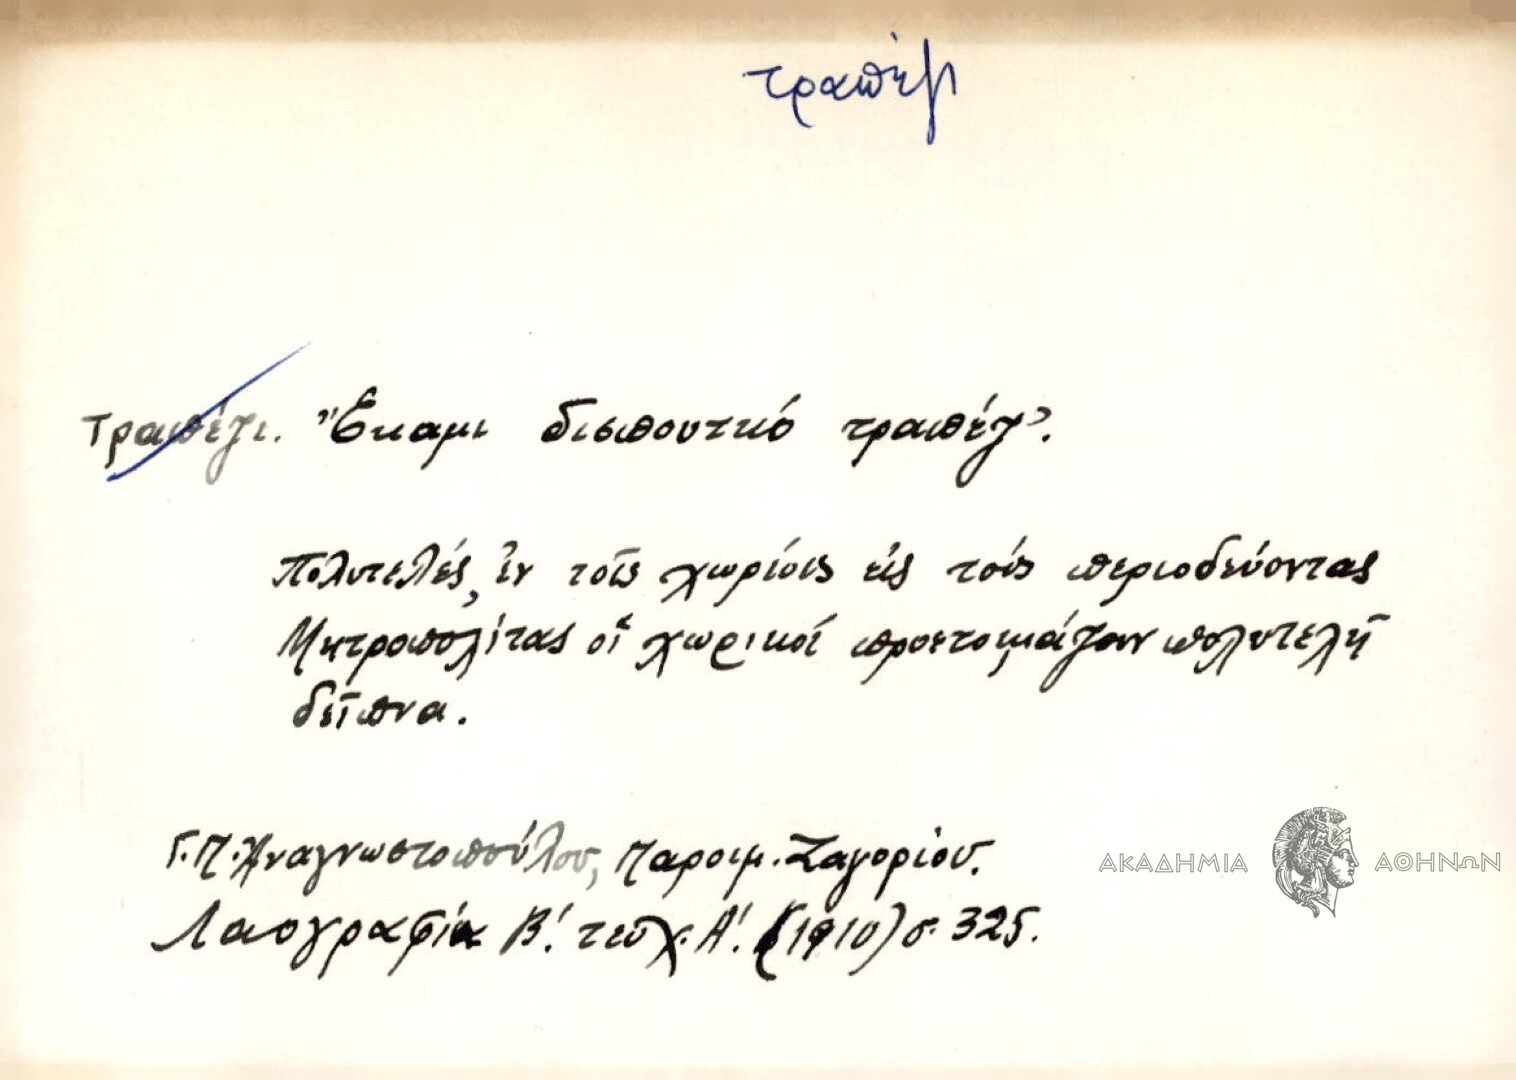 τραπέζι
Τραπέζι. "Έκαμι δισπουτκό τραπέζ'.
Πολυτελές, ἐν τοῖς χωρίοις εἰς τούς περιοδεύοντας
Μητροπολίτας οἱ χωρικοί προετοιμάζουν πολυτελῆ
δεῖπνα.
Γ. Π. Ἀναγνωστοπούλου, Παροιμ. Ζαγορίου.
Λαογραφία Β'. τευχ. Α'. (1910) σ. 325.
ΑΚΑΔΗΜΙΑ ΑΘΗΝΩΝ